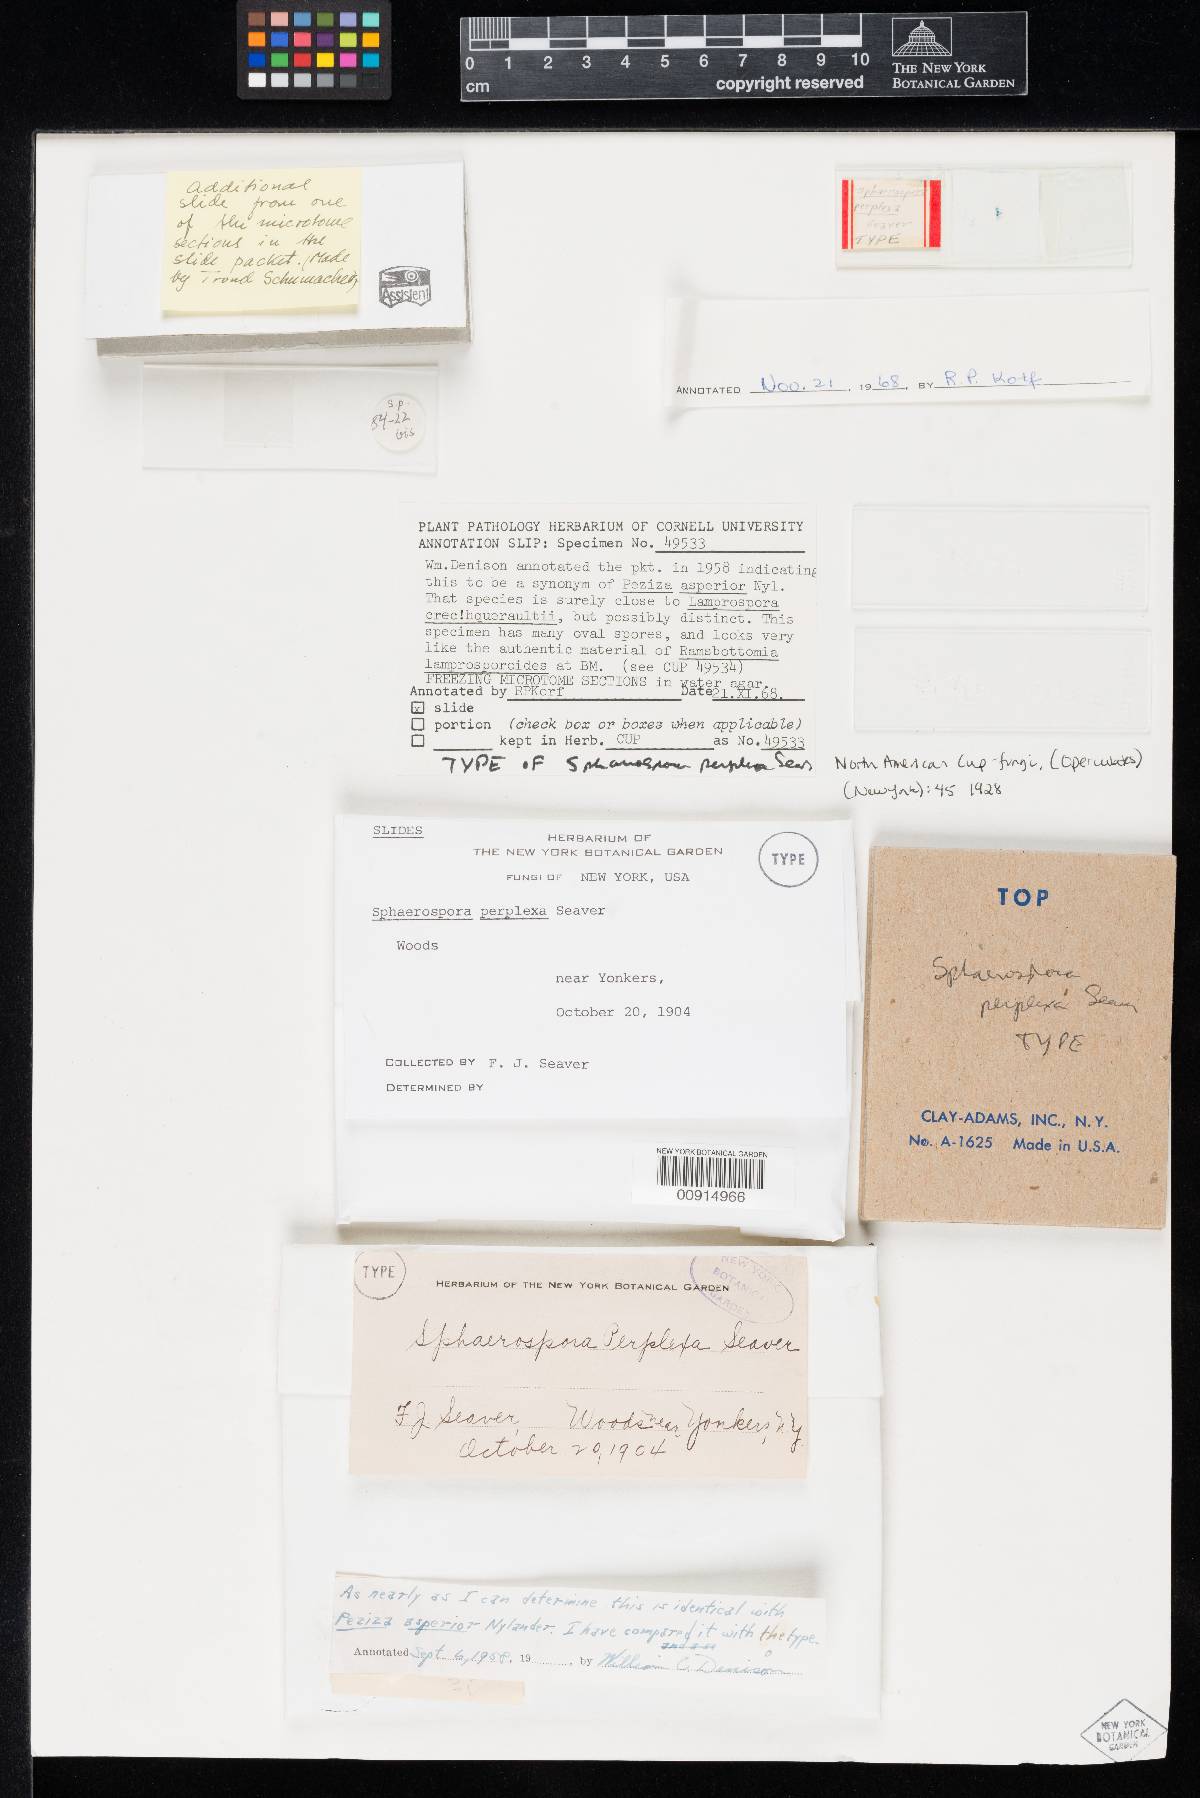 0 1 2 3 4 5 6 7 8 9 10
cm
copyright reserved
THE NEW YORK
BOTANICAL GARDEN
Additional
slide from one
of the microtome
sections in the
slide packet. (Made
by Trond Schumacher)
Assistent
s.p.
84-22
bis
Sphaerospora
perplexa
Seaver
TYPE
ANNOTATED Nov. 21, 1968, BY R.P. Korf
PLANT PATHOLOGY HERBARIUM OF CORNELL UNIVERSITY
ANNOTATION SLIP: Specimen No. 49533
Wm.Denison annotated the pkt. in 1958 indicating
this to be a synonym of Peziza asperior Nyl.
That species is surely close to Lamprospora
crec'hqueraultii, but possibly distinct. This
specimen has many oval spores, and looks very
like the authentic material of Ramsbottomia
lamprosporoides at BM. (see CUP 49534)
FREEZING MICROTOME SECTIONS in water agar.
Annotated by RPKorf Date 21.XI.68.
x slide
portion (check box or boxes when applicable)
kept in Herb. CUP as No. 49533
TYPE OF Sphaerospora perplexa Seav
North American Cup-fungi, (Operculates)
(New York): 45 1928
SLIDES
HERBARIUM OF
THE NEW YORK BOTANICAL GARDEN
TYPE
FUNGI OF NEW YORK, USA
Sphaerospora perplexa Seaver
Woods
near Yonkers,
October 20, 1904
COLLECTED BY F. J. Seaver
DETERMINED BY
NEW YORK BOTANICAL GARDEN
00914966
TOP
Sphaerospora
perplexa Seaver
TYPE
CLAY-ADAMS, INC., N.Y.
No. A-1625 Made in U.S.A.
TYPE
HERBARIUM OF THE NEW YORK BOTANICAL GARDEN
NEW YORK
BOTANICAL
GARDEN
Sphaerospora Perplexa Seaver
F J Seaver, Woods near Yonkers, N.Y.
October 20, 1904
As nearly as I can determine this is identical with
Peziza asperior Nylander. I have compared it with the type.
Annotated Sept 6, 1958, 19, by William C. Denison
NEW YORK
BOTANICAL
GARDEN